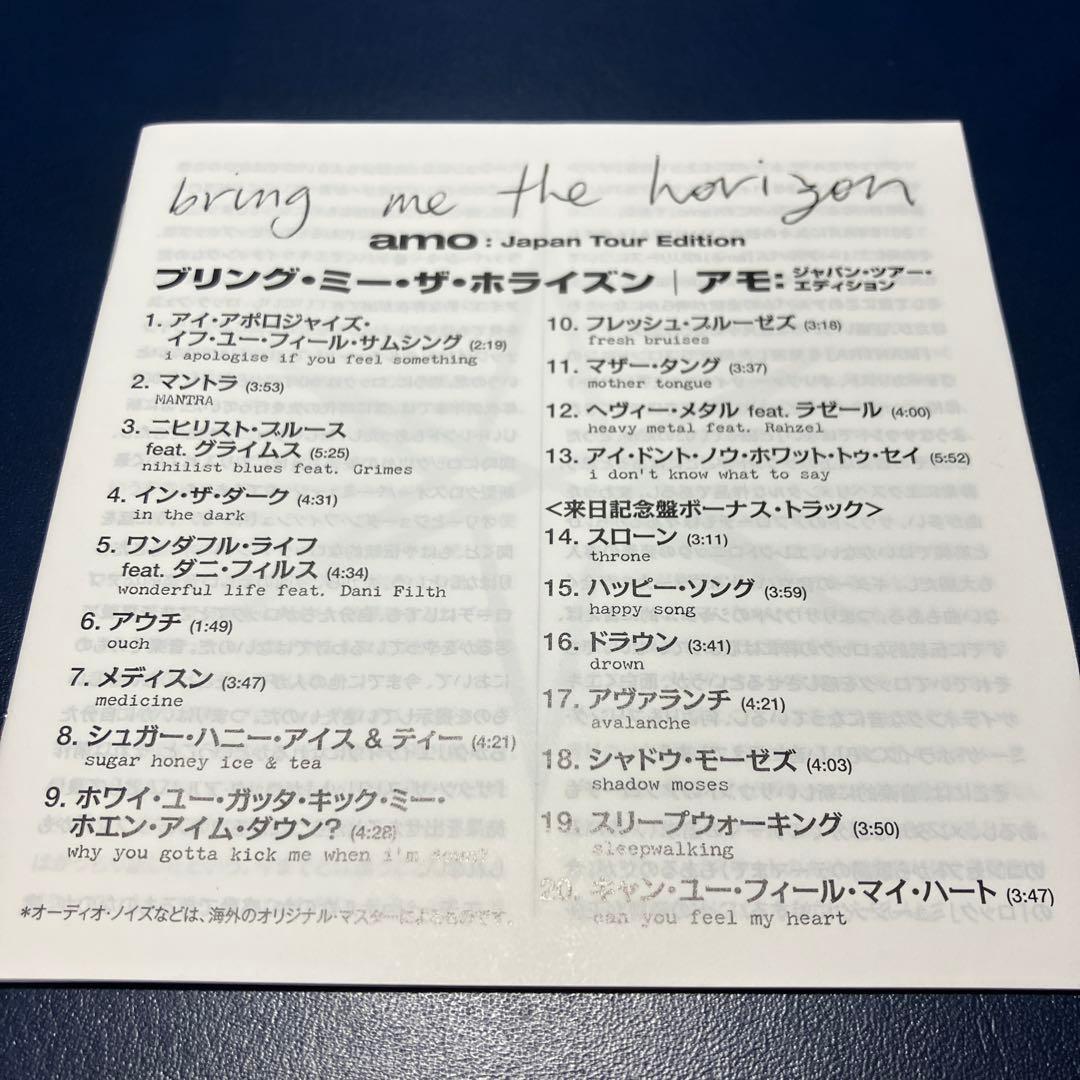 bring me the horizon
amo : Japan Tour Edition
ブリング・ミー・ザ・ホライズン | アモ: ジャパン・ツアー・
エディション
1. アイ・アポロジャイズ・
イフ・ユー・フィール・サムシング (2:19)
i apologise if you feel something
2. マントラ (3:53)
MANTRA
3. ニヒリスト・ブルース
feat. グライムス (5:25)
nihilist blues feat. Grimes
4. イン・ザ・ダーク (4:31)
in the dark
5. ワンダフル・ライフ
feat. ダニ・フィルス (4:34)
wonderful life feat. Dani Filth
6. アウチ (1:49)
ouch
7. メディスン (3:47)
medicine
8. シュガー・ハニー・アイス & ティー (4:21)
sugar honey ice & tea
9. ホワイ・ユー・ガッタ・キック・ミー・
ホエン・アイム・ダウン? (4:28)
why you gotta kick me when i'm down?
*オーディオ・ノイズなどは、海外のオリジナル・マスターによるものです。
10. フレッシュ・ブルーゼズ (3:18)
fresh bruises
11. マザー・タング (3:37)
mother tongue
12. ヘヴィー・メタル feat. ラゼール (4:00)
heavy metal feat. Rahzel
13. アイ・ドント・ノウ・ホワット・トゥ・セイ (5:52)
i don't know what to say
<来日記念盤ボーナス・トラック>
14. スローン (3:11)
throne
15. ハッピー・ソング (3:59)
happy song
16. ドラウン (3:41)
drown
17. アヴァランチ (4:21)
avalanche
18. シャドウ・モーゼズ (4:03)
shadow moses
19. スリープウォーキング (3:50)
sleepwalking
20. キャン・ユー・フィール・マイ・ハート (3:47)
can you feel my heart